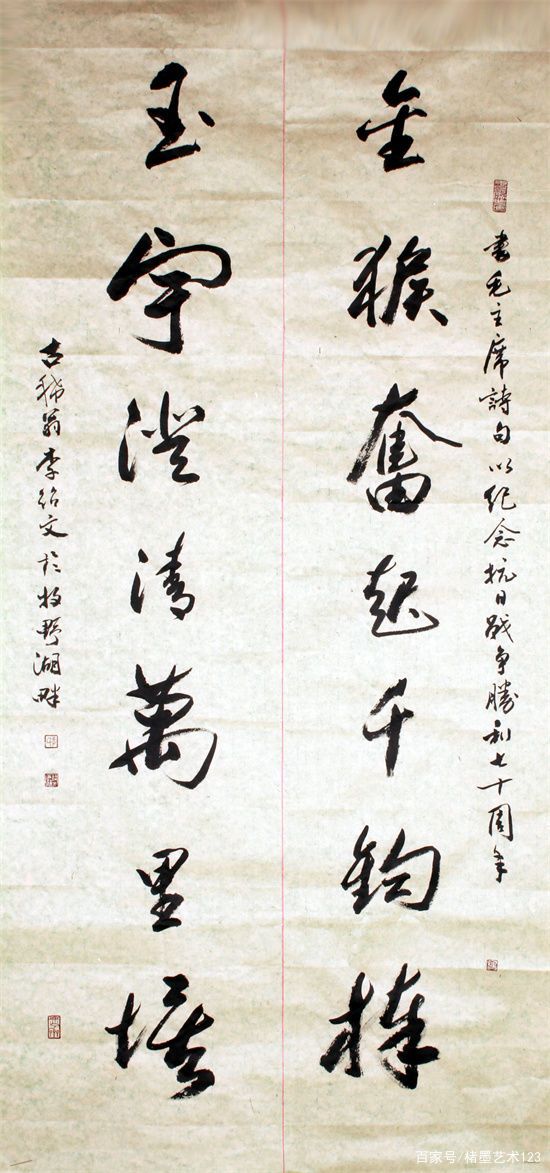 書毛主席詩句以紀念抗日战争勝利七十周年
金猴奮起千鈞棒
玉宇澄清萬里埃
古稀翁李紹文於牧野湖畔
百家号/楮墨艺术123